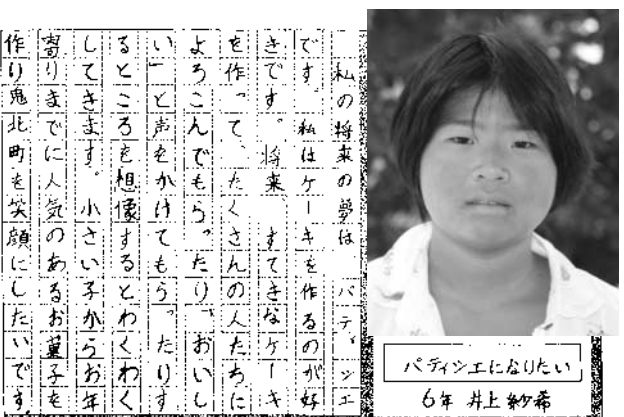 私の将来の夢は、パティシエ
です。私はケーキを作るのが好
きです。将来、すてきなケーキ
を作って、たくさんの人たちに
よろこんでもらったり「おいし
い」と声をかけてもらったりす
るところを想像するとわくわく
してきます。小さい子からお年
寄りまでに人気のあるお菓子を
作り鬼北町を笑顔にしたいです。
パティシエになりたい
6年 井上 紗希